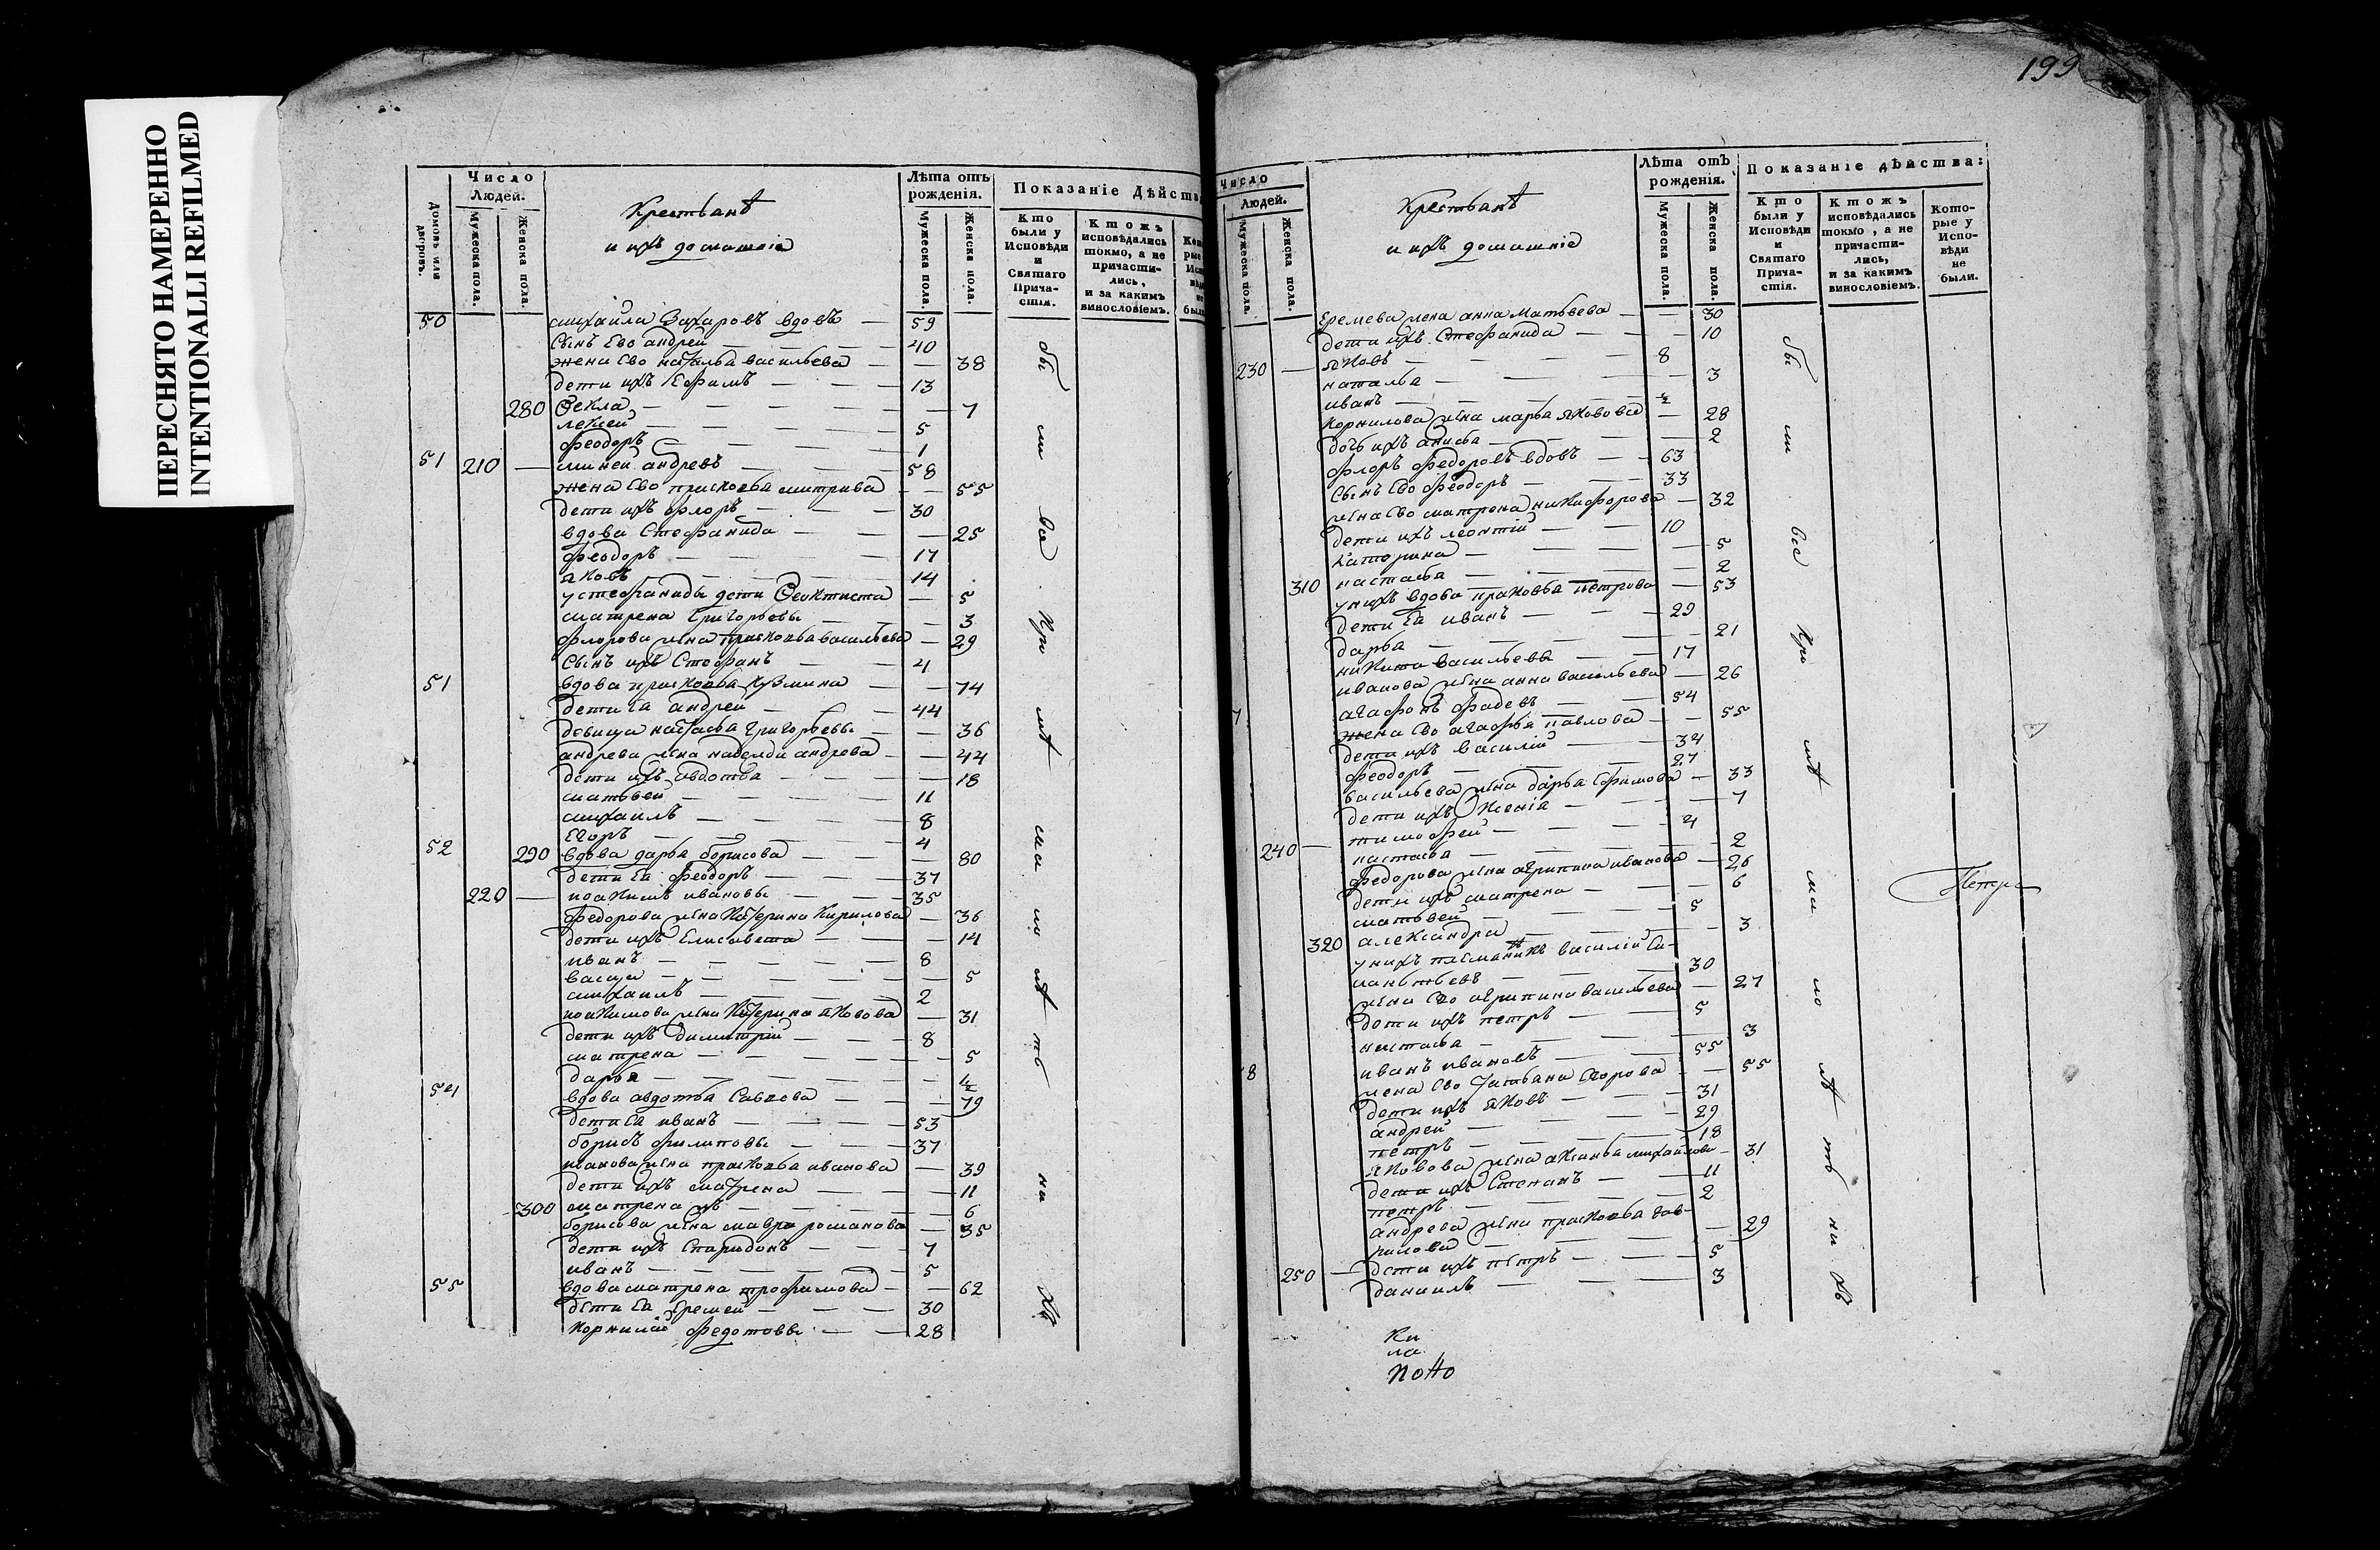 ПЕРЕСНЯТО НАМЕРЕННО
INTENTIONALLI REFILMED
Домовъ или дворовъ.
Число Людей.
Мужеска пола.
Женска пола.
Крестьянѣ
и ихъ домашніе
Лѣта отъ рожденія.
Мужеска пола.
Женска пола.
Показаніе Дѣйства
Кто были у Исповѣди и Святаго Причастія.
Ктожъ исповѣдались токмо, а не причастились, и за какимъ винословіемъ.
50 михаила Захаровъ вдовъ — 59
Сынъ Ево андрей — 40
жена Ево наталья васильева — 38
дети ихъ Ефимъ — 13
280 Ѳекла — 7
5
феодоръ — 1
51 210 — миней андревъ — 58
жена Ево прасковья митрива — 55
дети ихъ флоръ — 30
вдова Стефанида — 25
феодоръ — 17
яковъ — 14
у стефаниды дети Ѳеоктиста — 5
матрена Григорьевы — 3
флорова жена прасковья васильева — 29
Сынъ ихъ Стефанъ — 4
51 вдова прасковья Кузмина — 74
дети Ея андреи — 44
девица настасья григорьевы — 36
андрева жена надежда андрева — 44
дети ихъ авдотья — 18
матвеи — 11
михаилъ — 8
Егоръ — 4
52 290 вдова дарья борисова — 80
дети Ея феодоръ — 37
220 — иоакимъ ивановы — 35
федорова жена Катерина Кирилова — 36
дети ихъ Елисавета — 14
иванъ — 8
васца — 5
михаилъ — 2
иоакимова жена Катерина яковова — 31
дети ихъ димитрий — 8
матрена — 5
дарья — ½
54 вдова авдотья Савкова — 79
дети Ея иванъ — 53
борисъ филиповы — 37
иванова жена прасковья иванова — 39
дети ихъ матрена — 11
300 матрена — 6
борисова жена мавра романова — 35
дети ихъ Спиридонъ — 7
иванъ — 5
55 вдова матрена трофимова — 62
дети Ея Еремеи — 30
Корнилий федотовы — 28
199
Число Людей.
Мужеска пола.
Женска пола.
Крестьянѣ
и ихъ домашніе
Лѣта отъ рожденія.
Мужеска пола.
Женска пола.
Показаніе дѣйства:
Кто были у Исповѣди и Святаго Причастія.
Ктожъ исповѣдались токмо, а не причастились, и за какимъ винословіемъ.
Которые у Исповѣди не были.
Еремева жена анна Матвеева — 30
дети ихъ Стефанида — 10
230 — яковъ — 8
наталья — 3
иванъ — ½
Корнилова жена марья яковова — 28
дочь ихъ анисья — 2
флоръ федоровъ вдовъ — 63
Сынъ Ево феодоръ — 33
жена Ево матрена никифорова — 32
дети ихъ леонтий — 10
Катерина — 5
310 настасья — 2
у нихъ вдова прасковья петрова — 53
дети Ея иванъ — 29
дарья — 21
никита васильевы — 17
иванова жена анна васильева — 26
агафонъ фадевъ — 54
жена Ево агафья павлова — 55
дети ихъ василий — 34
феодоръ — 27
васильева жена дарья Ефимова — 33
дети ихъ Ксения — 7
тимофей — 4
240 — настасья — 2
федорова жена агрипина иванова — 26
дети ихъ матрена — 6
матвей — 5
320 александра — 3
у нихъ племянникъ василий Си-
лантьевъ — 30
жена Ево агрипина васильева — 27
дети ихъ петръ — 5
настасья — 3
8 иванъ ивановъ — 55
жена Ево татьяна Егорова — 55
дети ихъ яковъ — 31
андрей — 29
петръ — 18
яковова жена аксинья михайлова — 31
дети ихъ Степанъ — 11
петръ — 2
андрева жена прасковья гав-
рилова — 29
250 — дети ихъ петръ — 5
даниилъ — 3